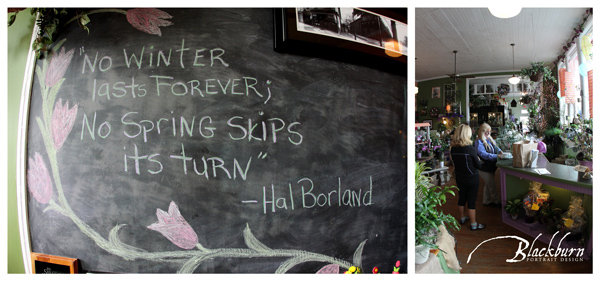 "No Winter
lasts Forever;
No Spring Skips
its turn"
- Hal Borland
Blackburn
PORTRAIT DESIGN